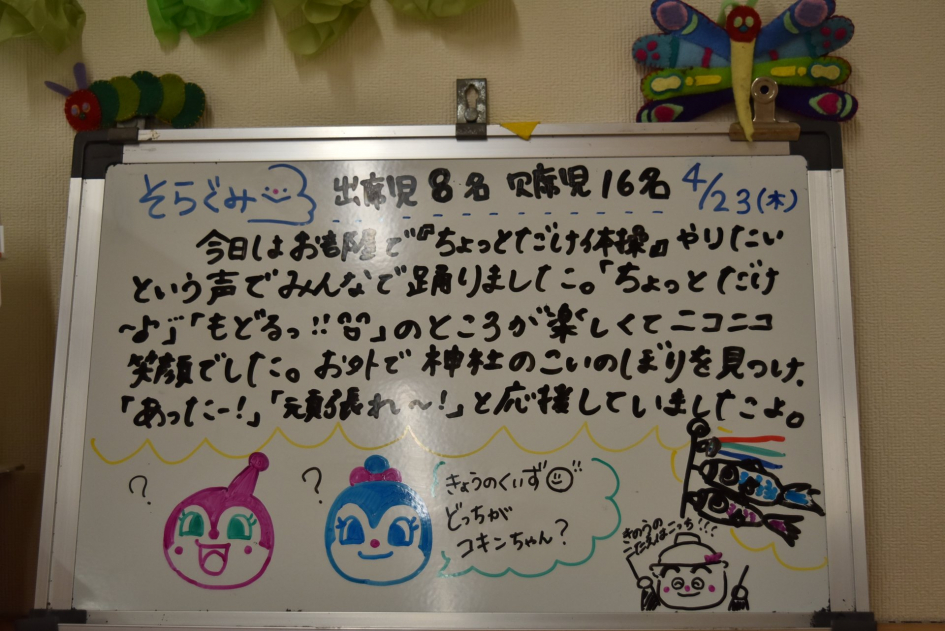 そらぐみ 出席児 8名 欠席児 16名 4/23(木)
今日はお部屋で『ちょっとだけ体操』やりたい
という声でみんなで踊りました。「ちょっとだけ
〜よ」「もどるっ!!」のところが楽しくてニコニコ
笑顔でした。お外で神社のこいのぼりを見つけ、
「あったー!」「頑張れ〜!」と応援していましたよ。
?
?
きょうのくいず
どっちが
コキンちゃん?
きのうの
こたえはこっち!!!